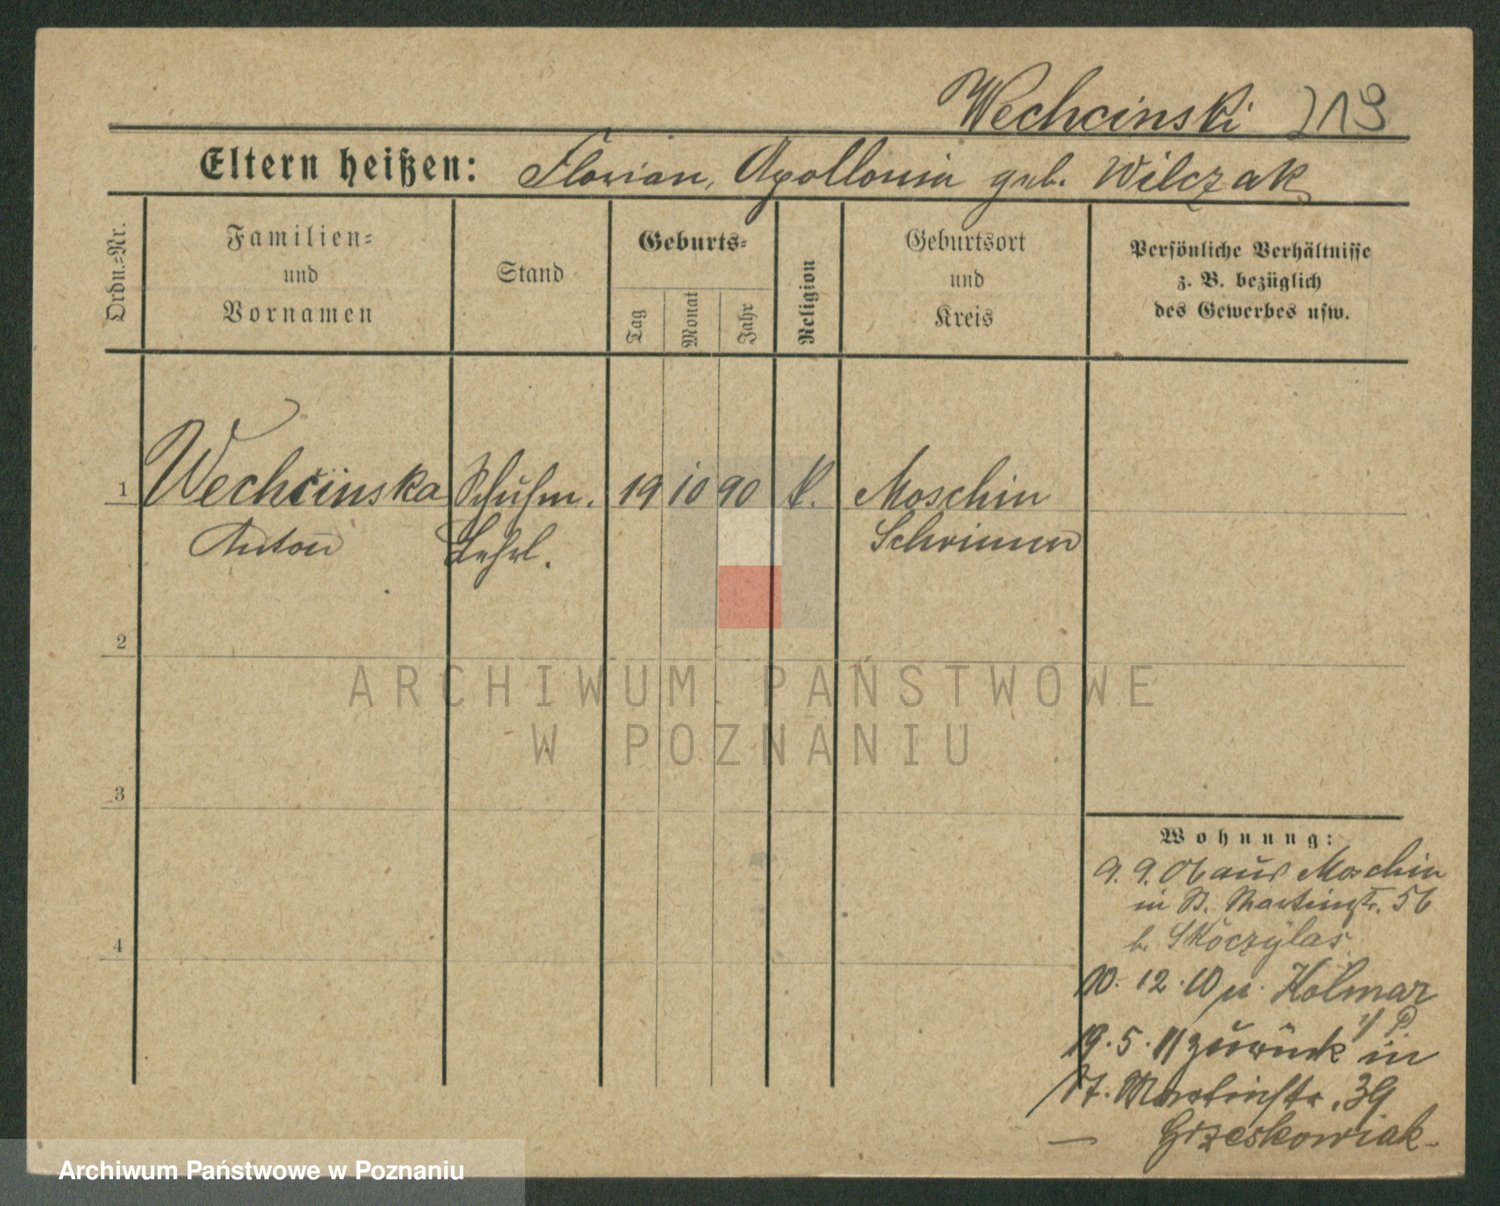 Wechcinski 213
Eltern heißen: Florian, Apollonia geb. Wilczak
Ordn.-Nr.
Familien-
und
Vornamen
Stand
Geburts-
Tag
Monat
Jahr
Religion
Geburtsort
und
Kreis
Persönliche Verhältnisse
z. B. bezüglich
des Gewerbes usw.
1 Wechcinska Schuhm. 19 10 90 k. Moschin
Anton Lehrl. Schrimm
2
3
4
Wohnung:
9. 9. 06 aus Moschin
in St. Martinstr. 56
b. Skoczylas
10. 12. 10 n. Kolmar
i/P.
19. 5. 11 zurück in
St. Martinstr. 39
Grzeskowiak
ARCHIWUM PAŃSTWOWE
W POZNANIU
Archiwum Państwowe w Poznaniu